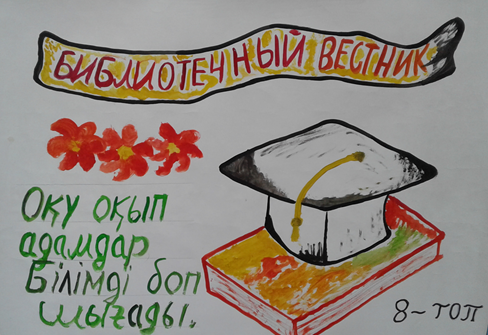 БИБЛИОТЕЧНЫЙ ВЕСТНИК
Оқу оқып
адамдар
Білімді боп
шығады.
8-топ